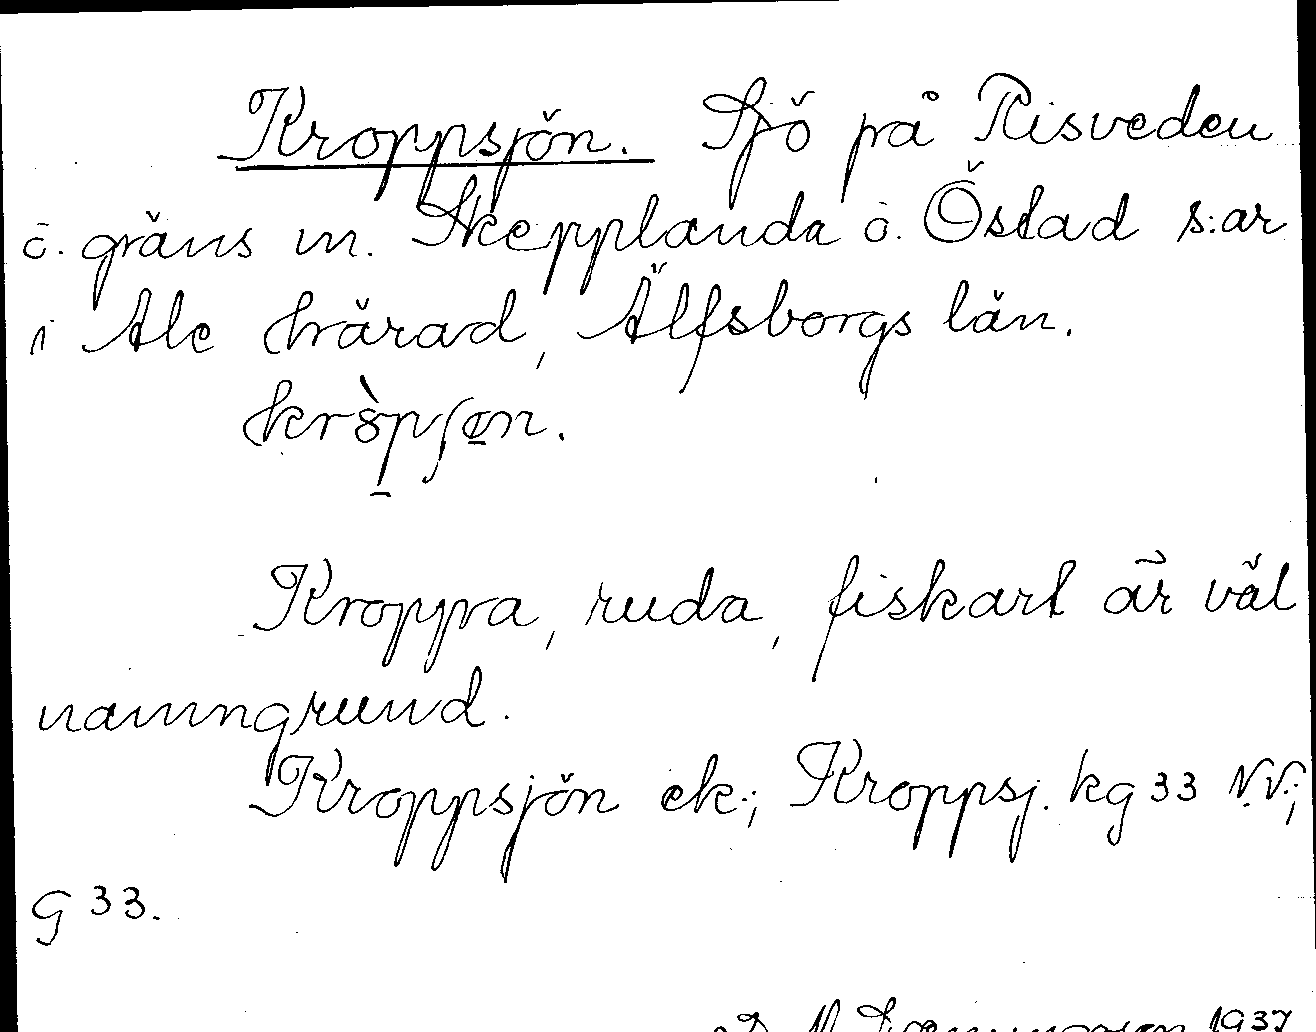 Kroppsjön. Sjö på Risveden
ö. gräns m. Skepplanda o. Östad s:ar
i Ale härad, Älfsborgs län.
kròpʃən.
Kroppa, ruda, fiskart är väl
namngrund.
Kroppsjön ek.; Kroppsj. kg 33 N.V.;
G 33.
1937